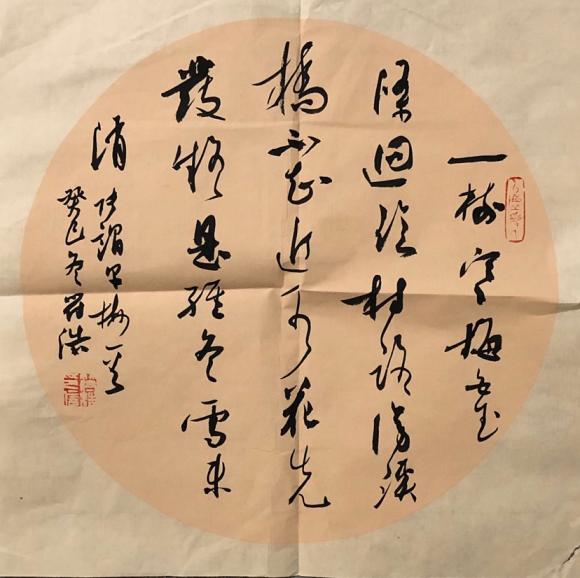 一樹寒梅白玉
條迥臨村路傍溪
橋不知近水花先
發疑是經冬雪未
消
張謂早梅一首
癸巳冬浩